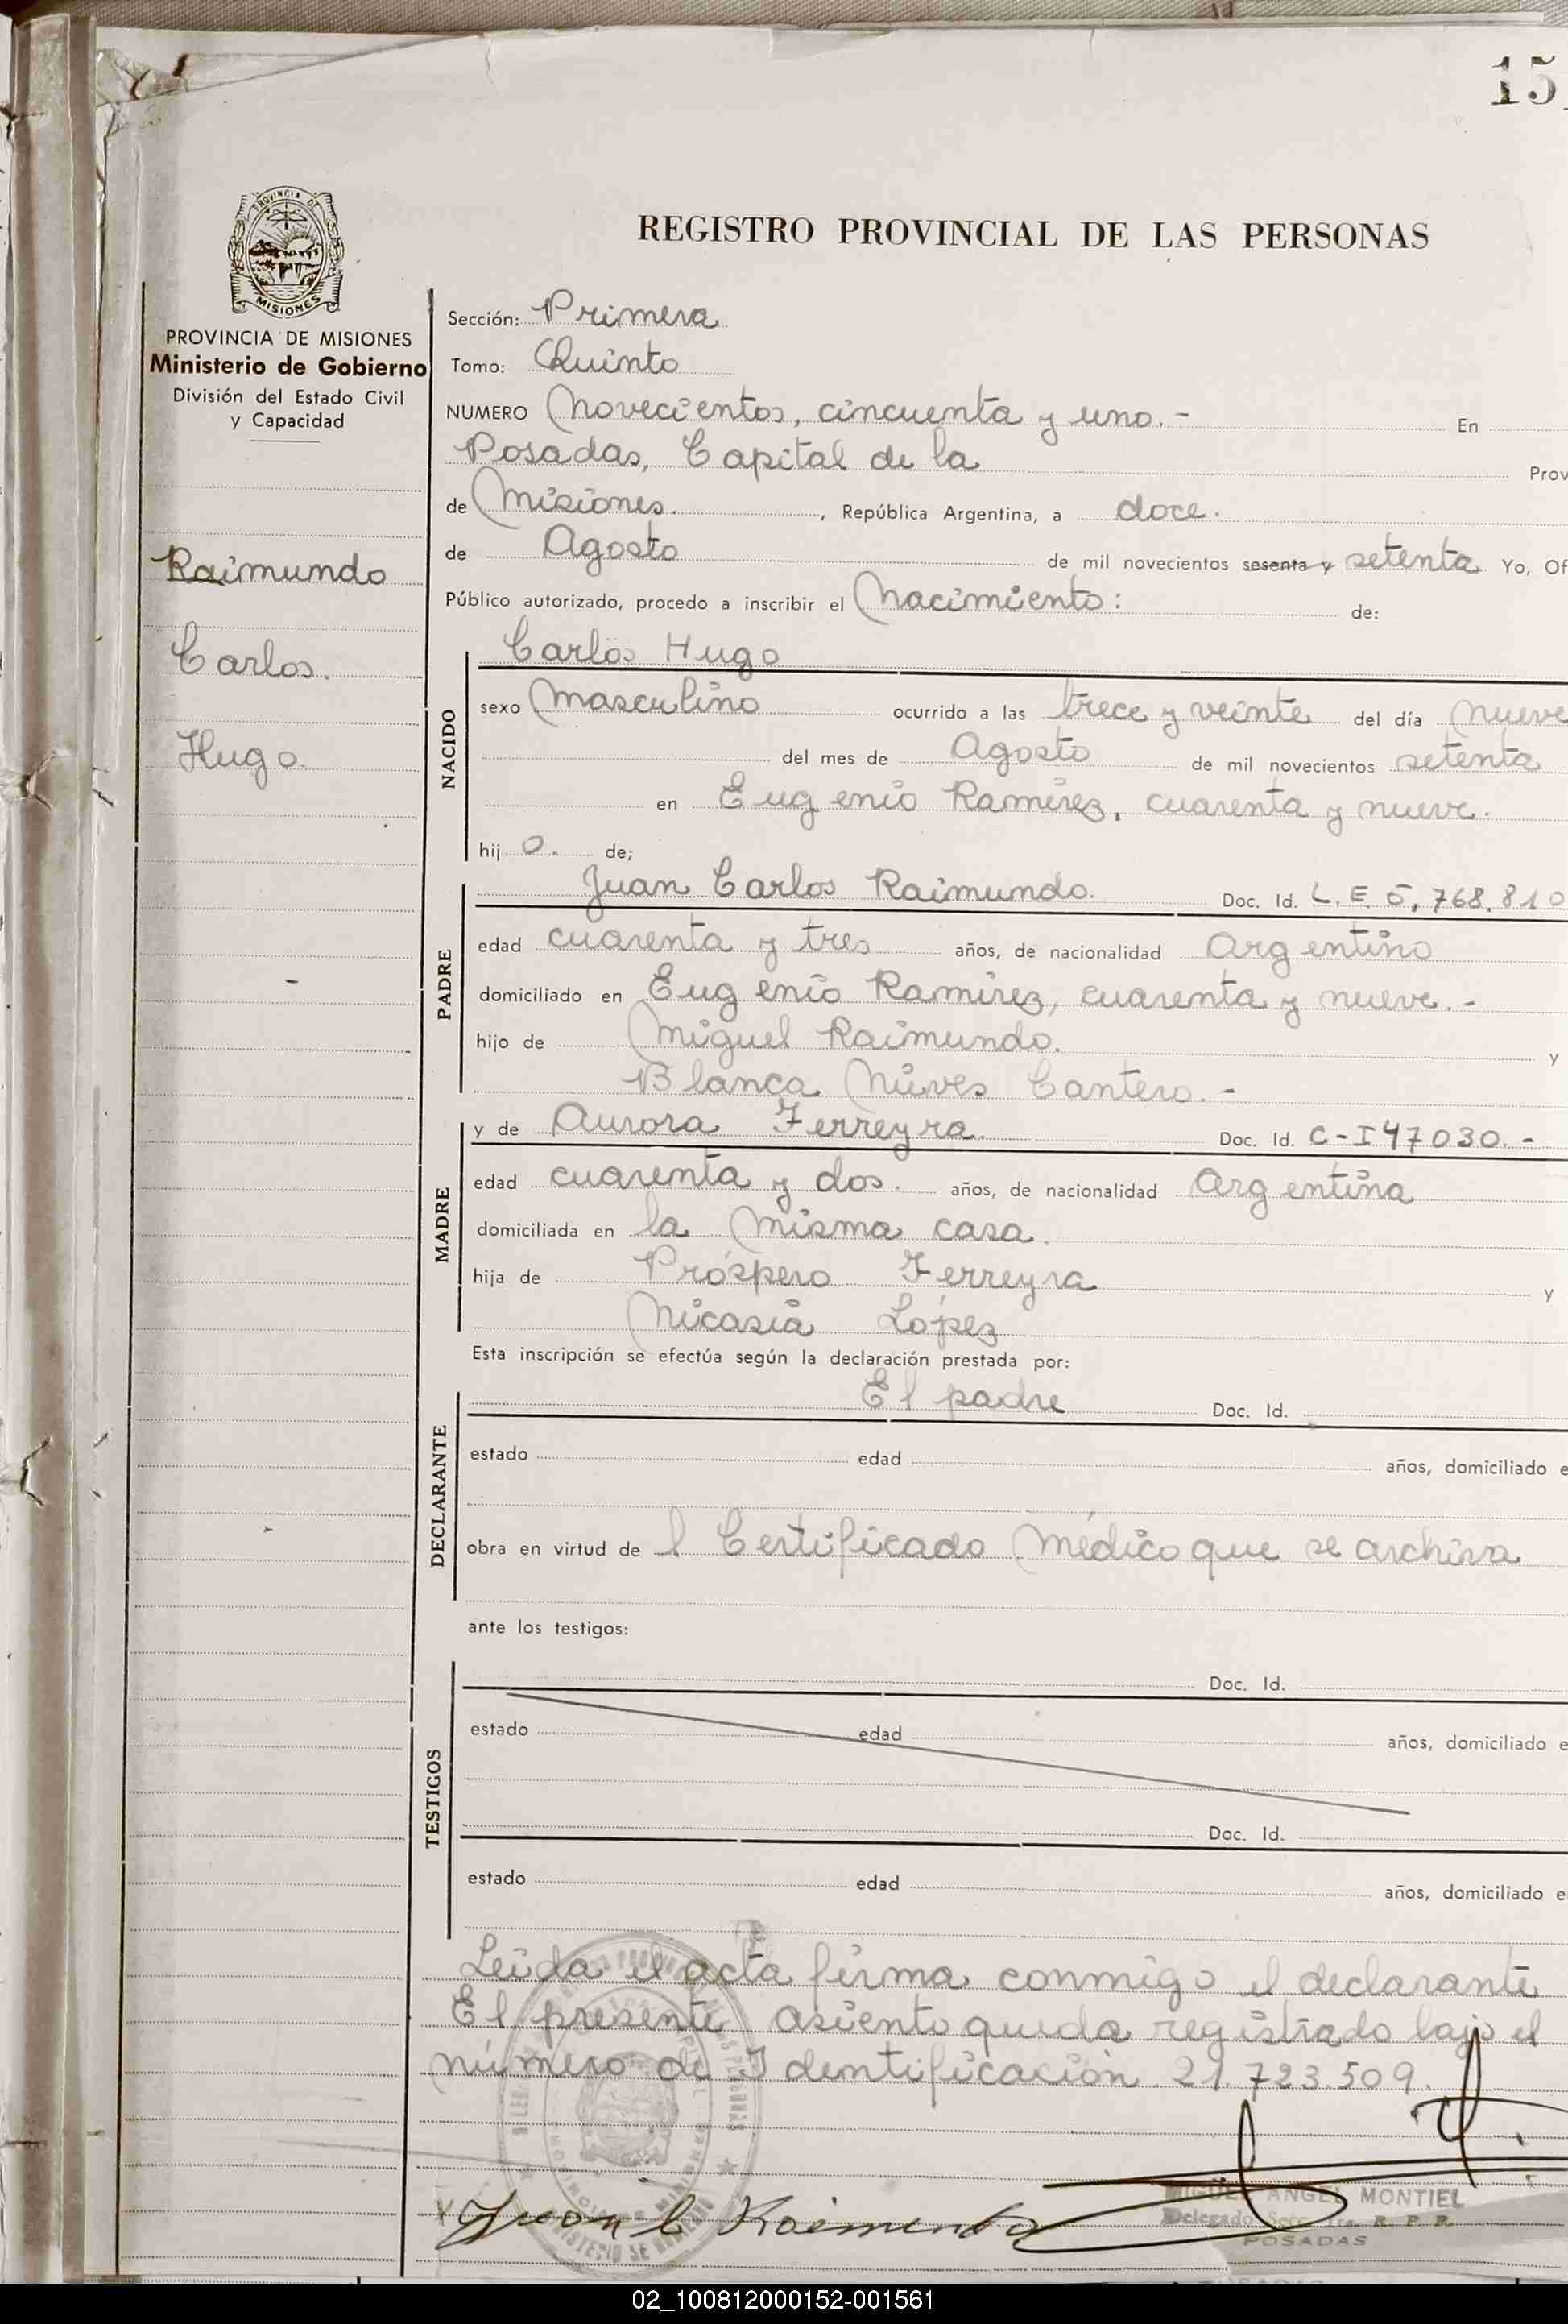 15
REGISTRO PROVINCIAL DE LAS PERSONAS
PROVINCIA DE MISIONES
Ministerio de Gobierno
División del Estado Civil
y Capacidad
Raimundo
Carlos.
Hugo.
Sección: Primera
Tomo: Quinto
NUMERO Novecientos, cincuenta y uno.- En
Posadas, Capital de la Prov
de Misiones. , República Argentina, a doce.
de Agosto de mil novecientos sesenta y setenta Yo, Of
Público autorizado, procedo a inscribir el Nacimiento: de:
NACIDO
Carlos Hugo
sexo Masculino ocurrido a las trece y veinte del día Nueve
del mes de Agosto de mil novecientos setenta
en Eugenio Ramírez, cuarenta y nueve.
hij o. de;
PADRE
Juan Carlos Raimundo. Doc. Id. L.E. 5.768.810
edad cuarenta y tres años, de nacionalidad Argentino
domiciliado en Eugenio Ramírez, cuarenta y nueve.-
hijo de Miguel Raimundo. y
Blanca Nieves Cantero.-
MADRE
y de Aurora Ferreyra. Doc. Id. C-I 47030.-
edad cuarenta y dos. años, de nacionalidad Argentina
domiciliada en la misma casa.
hija de Próspero Ferreyra y
Nicasia López
Esta inscripción se efectúa según la declaración prestada por:
DECLARANTE
El padre Doc. Id.
estado edad años, domiciliado e
obra en virtud de l Certificado Médico que se archiva
ante los testigos:
TESTIGOS
Doc. Id.
estado edad años, domiciliado e
Doc. Id.
estado edad años, domiciliado e
Leída el acta firma conmigo el declarante
El presente asiento queda registrado bajo el
número de Identificación 21.723.509.
Juan C Raimundo
MIGUEL ANGEL MONTIEL
Delegado Secc. 1ra. R. P. P.
POSADAS
02_100812000152-001561